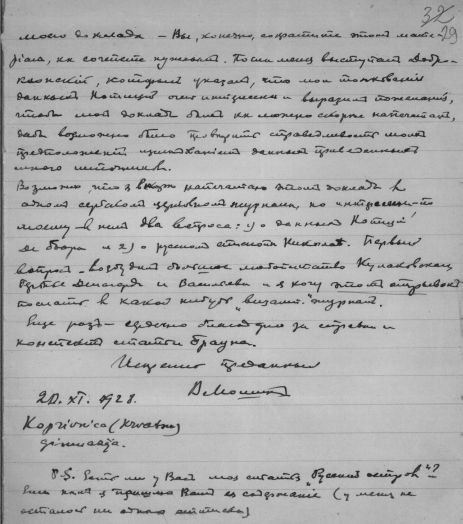 32
29
моего доклада – Вы, конечно, сократите этот мате-
риал, как сочтете нужным. После меня выступал Добро-
клонский, который указал, что мои толкования
данных Нотиций очень интересны и выразил пожелание,
чтобы мой доклад был как можно скорее напечатан,
дабы возможно было проверить справедливость моих
предположений данных приведенных
много источников.
Возможно, что я напечатаю этот доклад в
одном сербском церковном журнале, но интересны-то
по-моему в нем два вопроса: 1) о данных Нотиций
де Боора и 2) о русском епископе Николае. Первый
вопрос – возбудил большое любопытство Кулаковского,
Васильева и я хочу этот отрывок
послать в какой нибудь „визант." журнал.
Еще раз – сердечно благодарю за справки и
конспект статьи Брауна.
Искренно преданный
В Мошин
20. XI. 1928.
Koprivnica (Hrvatska)
gimnazija.
P.S. Есть ли у Вас моя статья „Русский остров"?
Если нет я пришлю Вам ее содержание (у меня не
осталось ни одного оттиска)